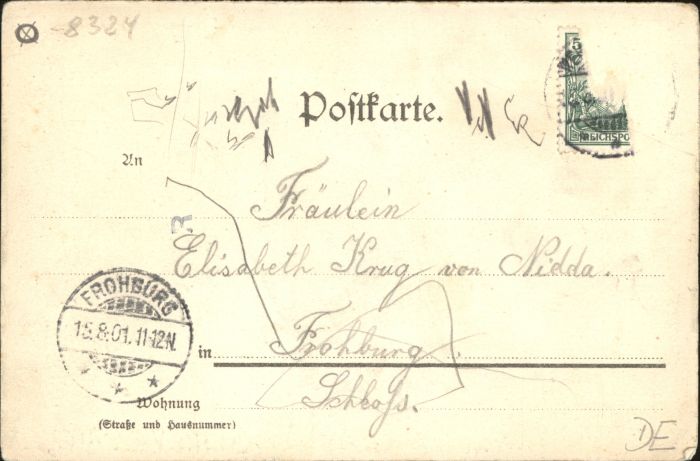 -8324
5
Postkarte.
REICHSPO
An
Fräulein
Elisabeth Krug von Nidda.
FROHBURG
15.8.01. 11-12N.
in Frohburg.
Schloss.
Wohnung
(Straße und Hausnummer)
DE